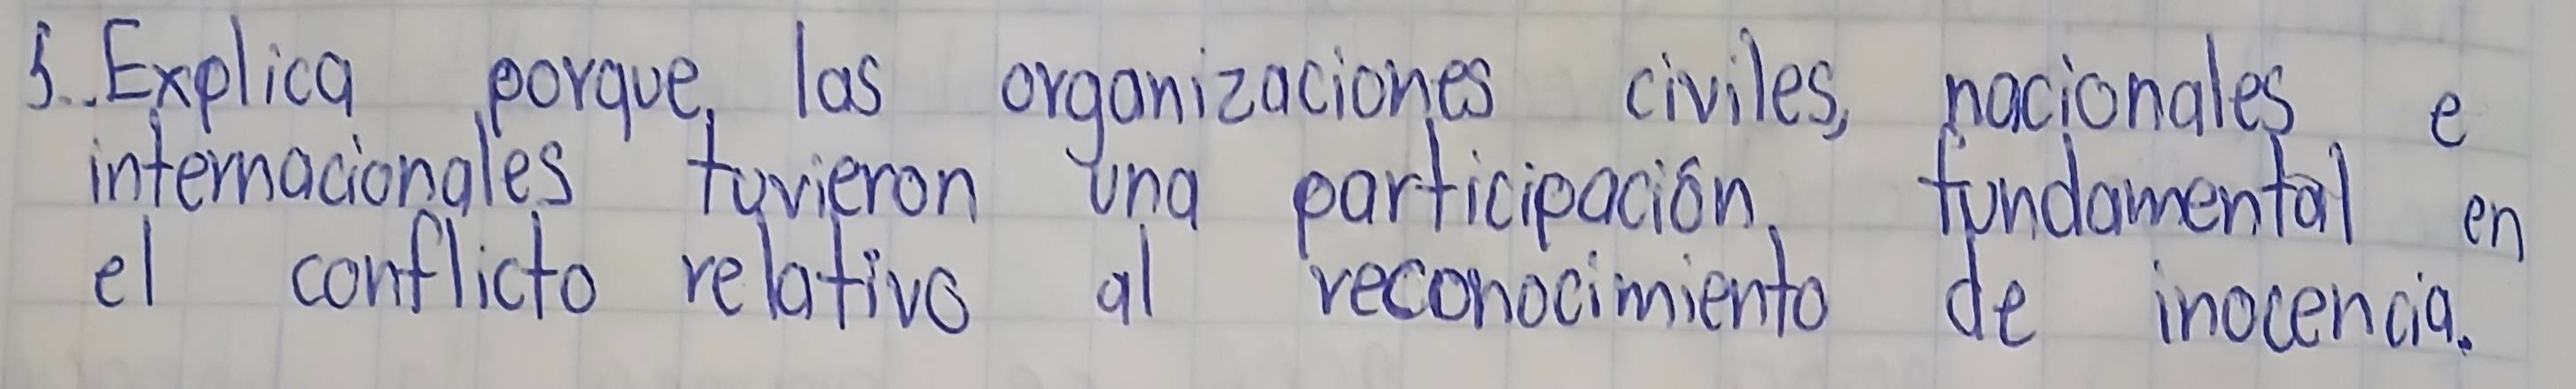 5..Explica porque, las organizaciones civiles, nacionales e
internacionales tuvieron una participación, fundamental en
el conflicto relativo al reconocimiento de inocencia.